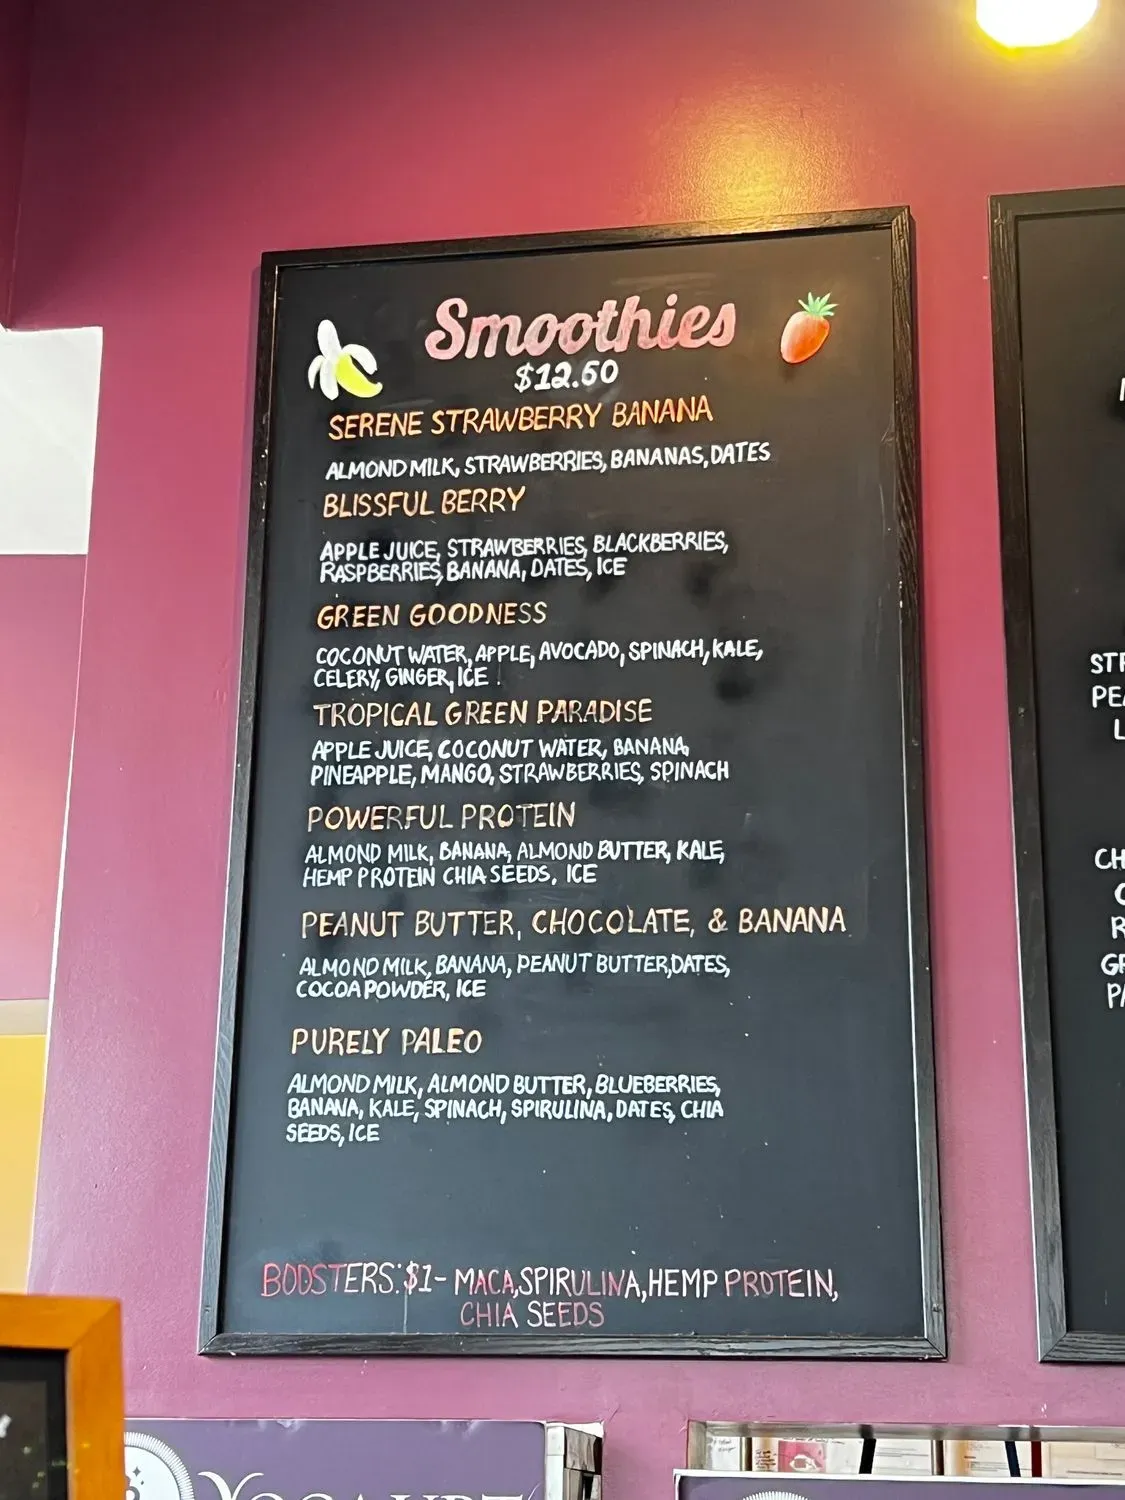 Smoothies
$12.50
SERENE STRAWBERRY BANANA
ALMOND MILK, STRAWBERRIES, BANANAS, DATES
BLISSFUL BERRY
APPLE JUICE, STRAWBERRIES, BLACKBERRIES,
RASPBERRIES, BANANA, DATES, ICE
GREEN GOODNESS
COCONUT WATER, APPLE, AVOCADO, SPINACH, KALE,
CELERY, GINGER, ICE .
TROPICAL GREEN PARADISE
APPLE JUICE, COCONUT WATER, BANANA,
PINEAPPLE, MANGO, STRAWBERRIES, SPINACH
POWERFUL PROTEIN
ALMOND MILK, BANANA, ALMOND BUTTER, KALE,
HEMP PROTEIN CHIA SEEDS, ICE
PEANUT BUTTER, CHOCOLATE, & BANANA
ALMOND MILK, BANANA, PEANUT BUTTER, DATES,
COCOA POWDER, ICE
PURELY PALEO
ALMOND MILK, ALMOND BUTTER, BLUEBERRIES,
BANANA, KALE, SPINACH, SPIRULINA, DATES, CHIA
SEEDS, ICE
BOOSTERS: $1- MACA, SPIRULINA, HEMP PROTEIN,
CHIA SEEDS